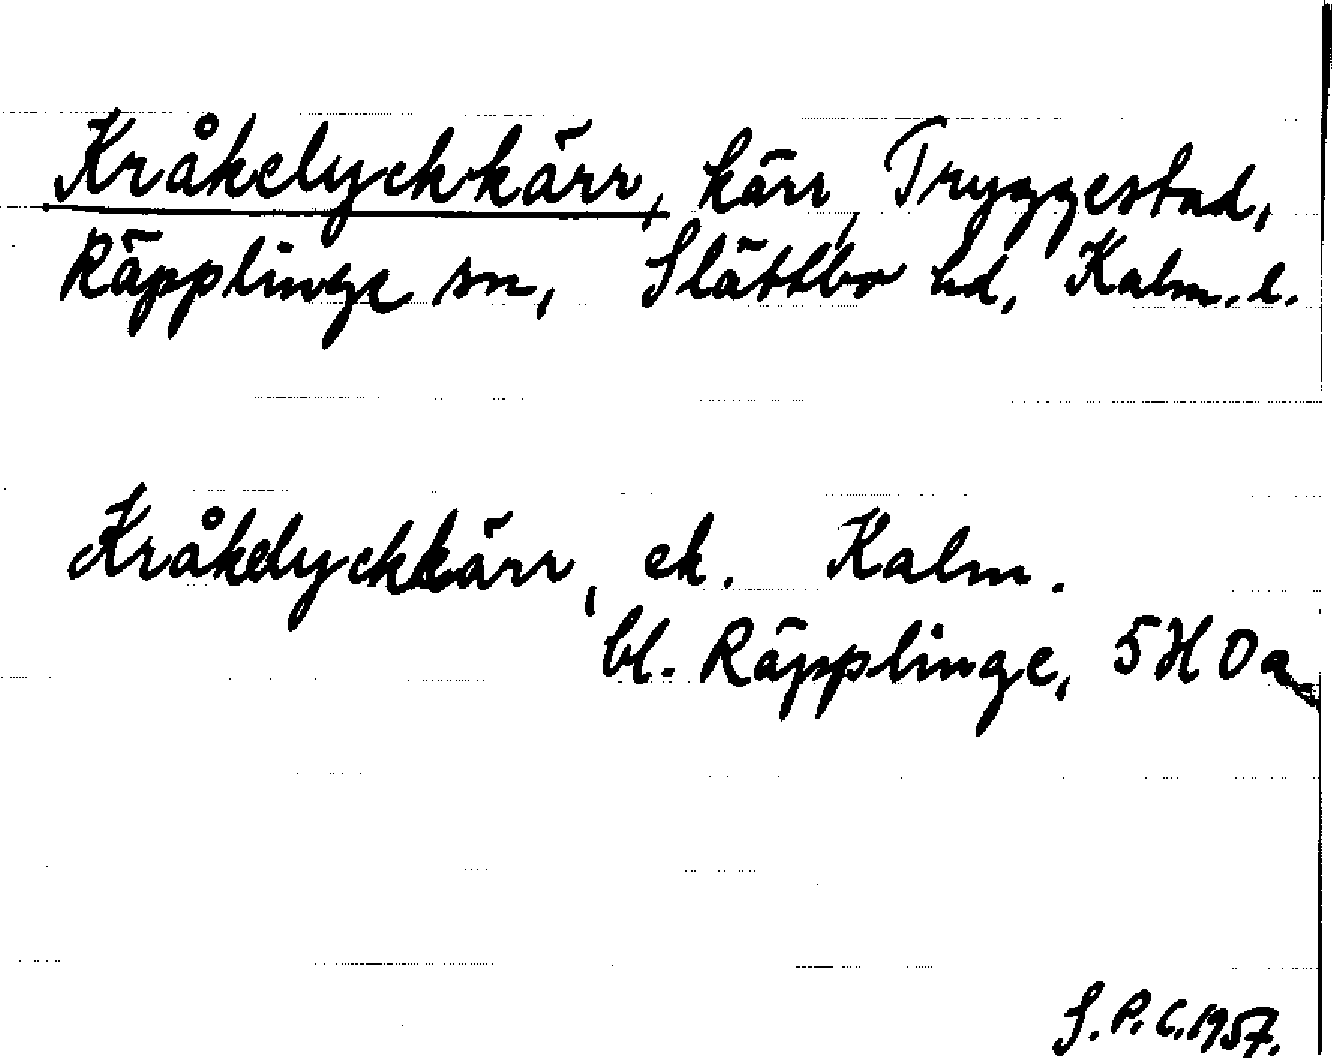 Kråkelyckkärr, kärr, Tryggestad,
Räpplinge sn, Slättbo hd, Kalm. l.
Kråkelyckkärr, ek. Kalm.
bl. Räpplinge, 5 H 0 a
S. P. C. 1957.